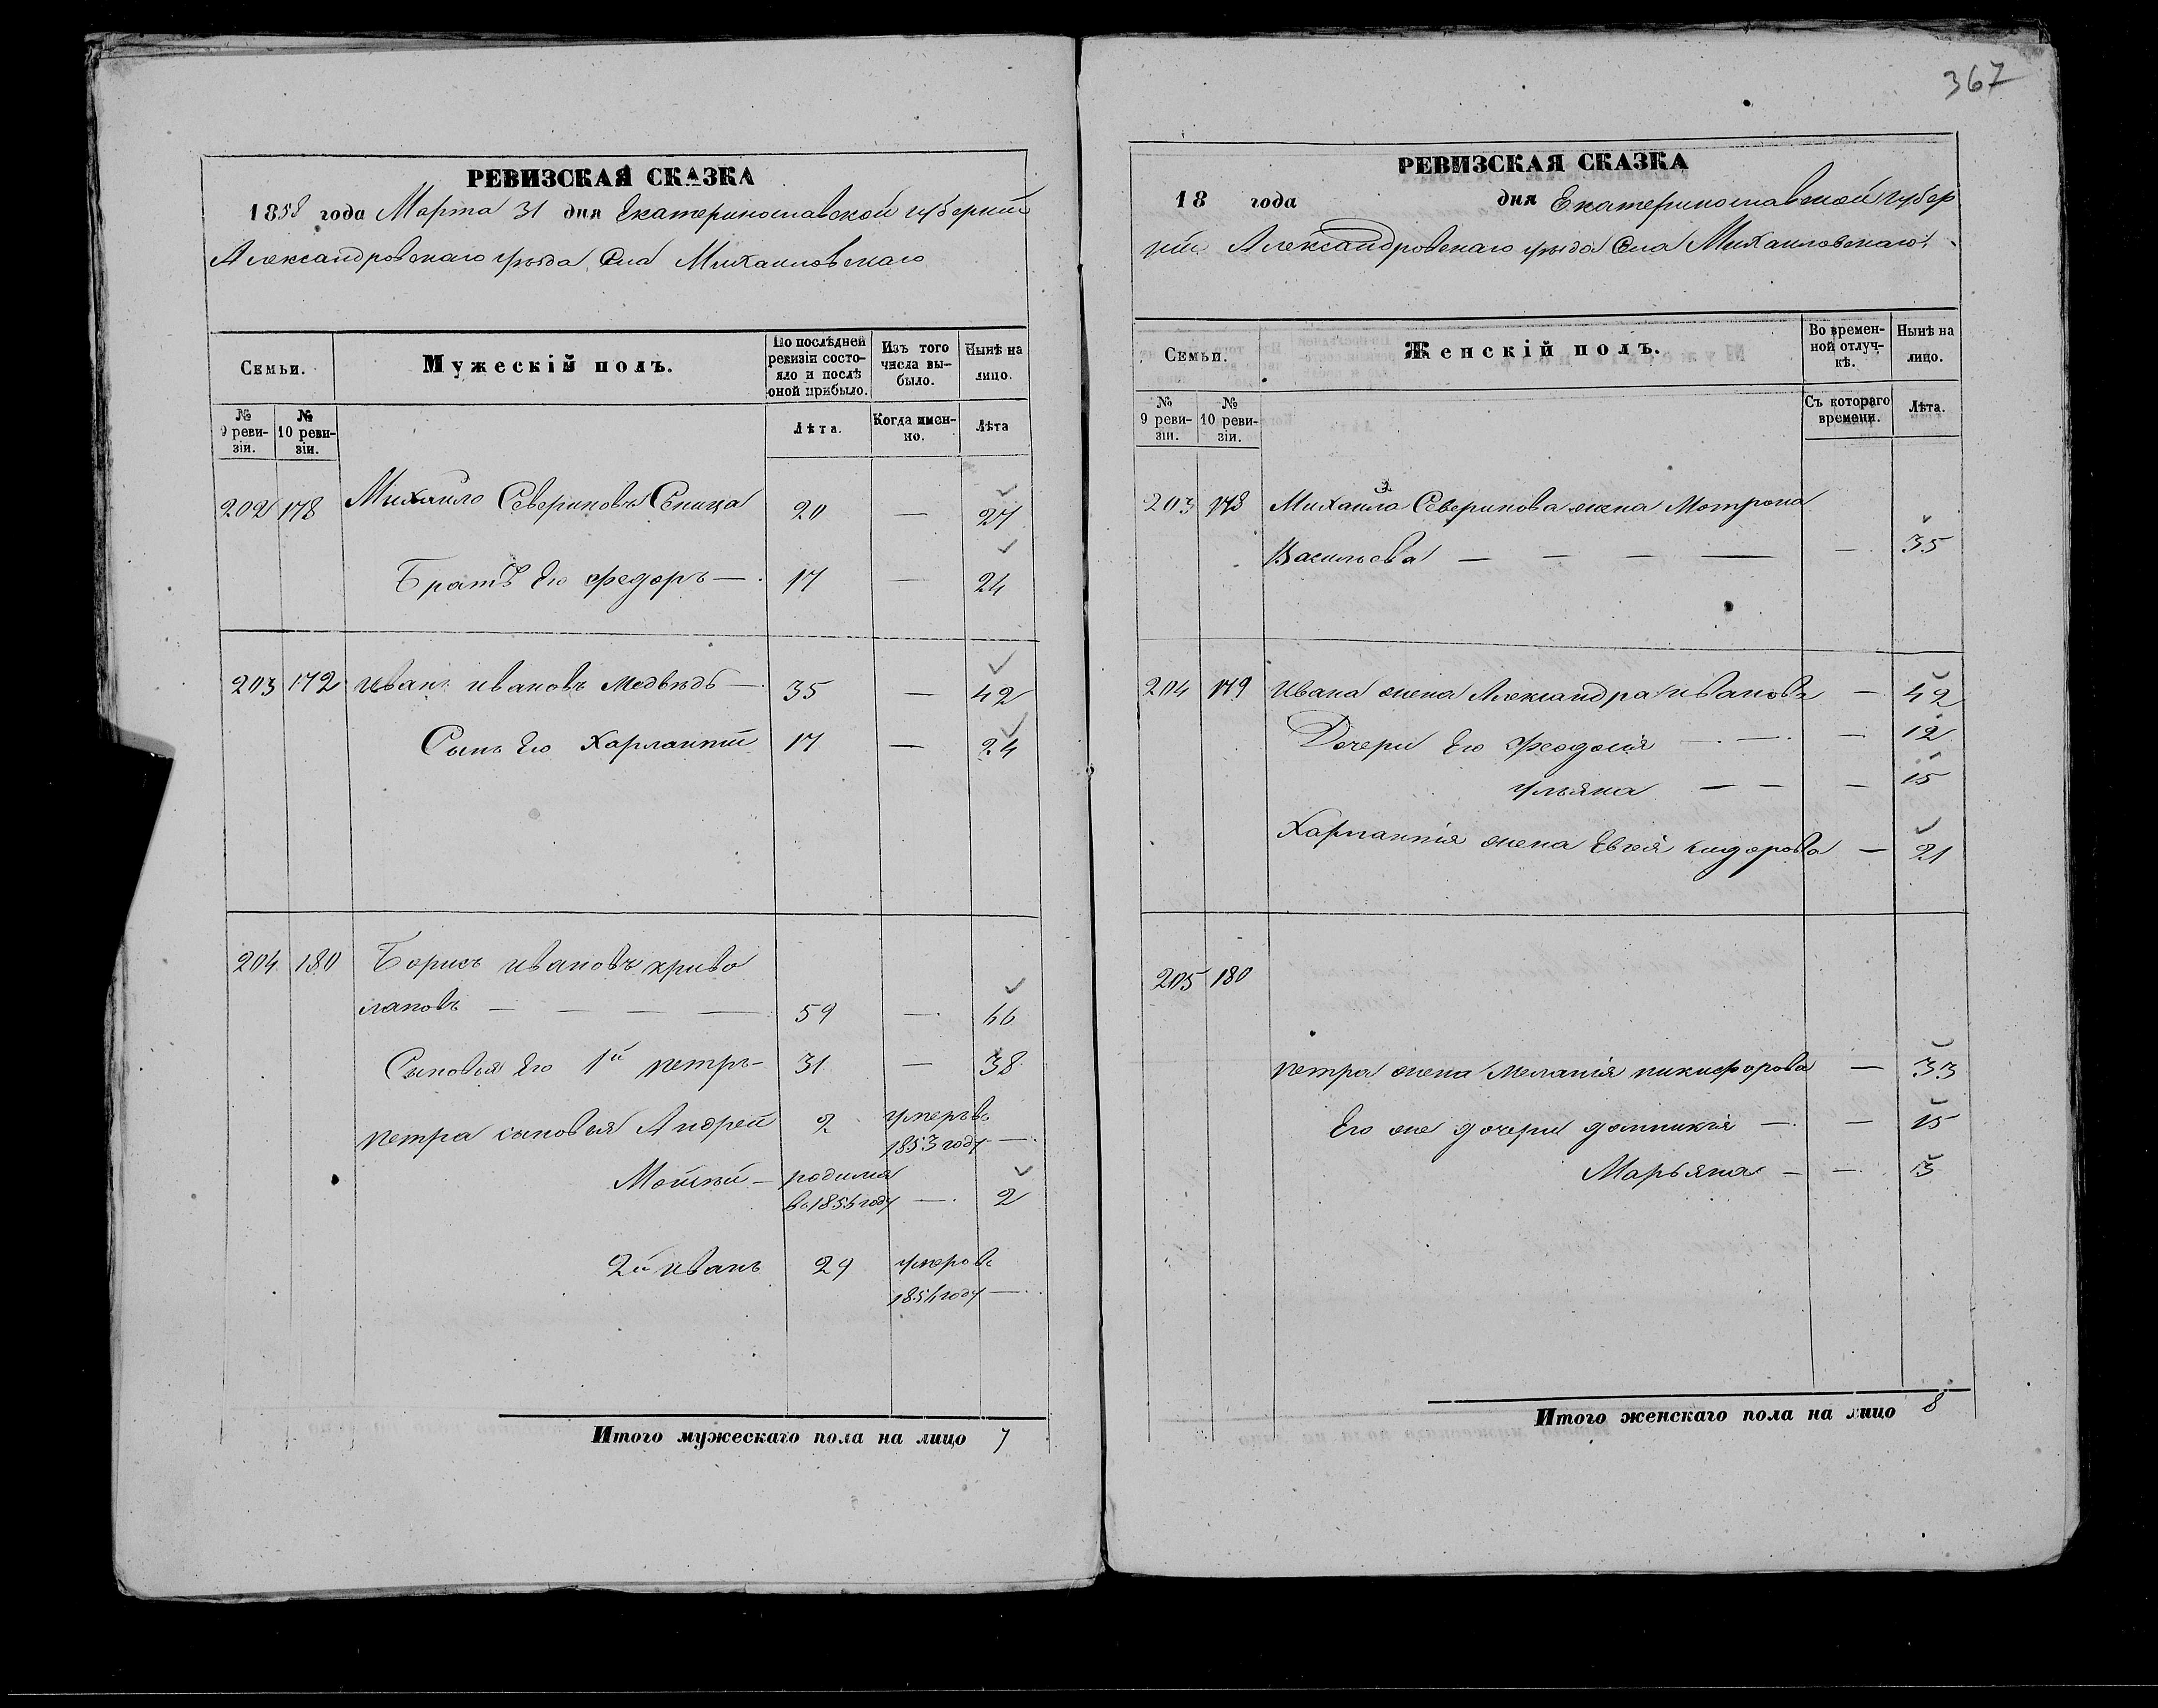 367
РЕВИЗСКАЯ СКАЗКА
1858 года Марта 31 дня Екатеринославской губерніи
Александровскаго уѣзда Села Михайловскаго
Семьи.
Мужескій полъ.
По послѣдней ревизіи состояло и послѣ оной прибыло.
Изъ того числа выбыло.
Нынѣ на лицо.
№ 9 ревизіи.
№ 10 ревизіи.
Лѣта.
Когда именно.
Лѣта
202 178 Михайло Севериновъ Сеница 20 — 27
Братъ Его Федоръ — 17 — 24
203 172 Иванъ Ивановъ Медвѣдь — 35 — 42
Сынъ Его Харлампій 17 — 24
204 180 Борисъ Ивановъ криво
лаповъ — — — — 59 — 66
Сыновья Его 1й петръ — 31 — 38
петра сыновья Андрей 2 умеръ въ
1853 году —
Мойсѣй — родился
въ 1856 году — 2
2й Иванъ 29 умеръ въ
1854 году —
Итого мужескаго пола на лицо 7
РЕВИЗСКАЯ СКАЗКА
18 года дня Екатеринославской губер
ніи Александровскаго уѣзда Села Михайловскаго
Семьи.
Женскій полъ.
Во временной отлучкѣ.
Нынѣ на лицо.
№ 9 ревизіи.
№ 10 ревизіи.
Съ котораго времени.
Лѣта.
203 178 Михаила Северинова жена Мотрона
Васильева — — — — — 35
204 179 Ивана жена Александра Иванова — 42
Дочери Его Феодосія — — — 12
Ульяна — — — 15
Харлампія жена Евгея сидорова — 21
205 180
петра жена Меланія никифорова — 33
Его же дочери домникія — — 15
Марьяна — — 3
Итого женскаго пола на лицо 8